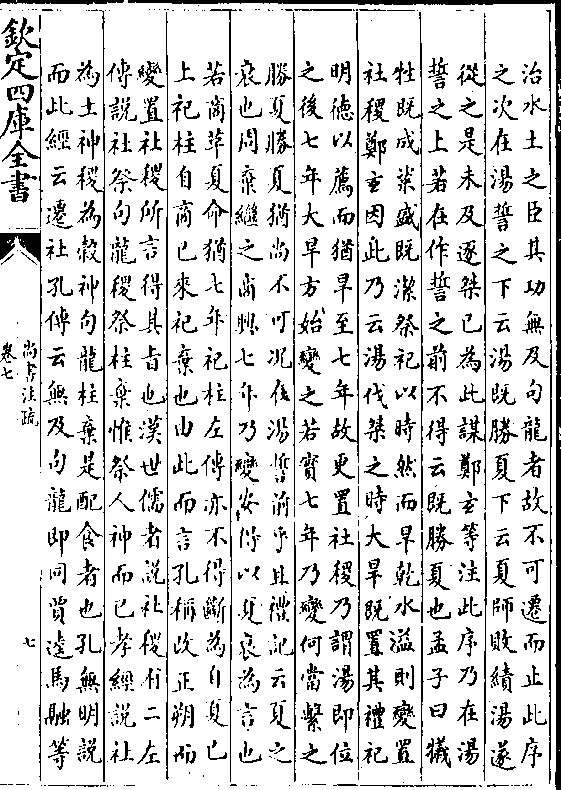 治水土之臣其功無及句龍者故不可遷而止此序
之次在湯誓之下云湯既勝夏下云夏師敗績湯遂
從之是未及逐桀已為此謀鄭玄等注此序乃在湯
誓之上若在作誓之前不得云既勝夏也孟子曰犧
牲既成粢盛既潔祭祀以時然而旱乾水溢則變置
社稷鄭玄因此乃云湯伐桀之時大旱既置其禮祀
明德以薦而猶旱至七年故更置社稷乃謂湯即位
之後七年大旱方始變之若實七年乃變何當繫之
勝夏勝夏猶尚不可况在湯誓前乎且禮記云夏之
衰也周棄繼之商興七年乃變安得以夏衰為言也
若商革夏命猶七年祀柱左傳亦不得斷為自夏已
上祀柱自商已來祀棄也由此而言孔稱改正朔而
變置社稷所言得其旨也漢世儒者說社稷有二左
傳說社祭句龍稷祭柱棄惟祭人神而已孝經說社
為土神稷為穀神句龍柱棄是配食者也孔無明說
而此經云遷社孔傳云無及句龍即同賈逵馬融等
欽定四庫全書
尚書注疏
卷七
七